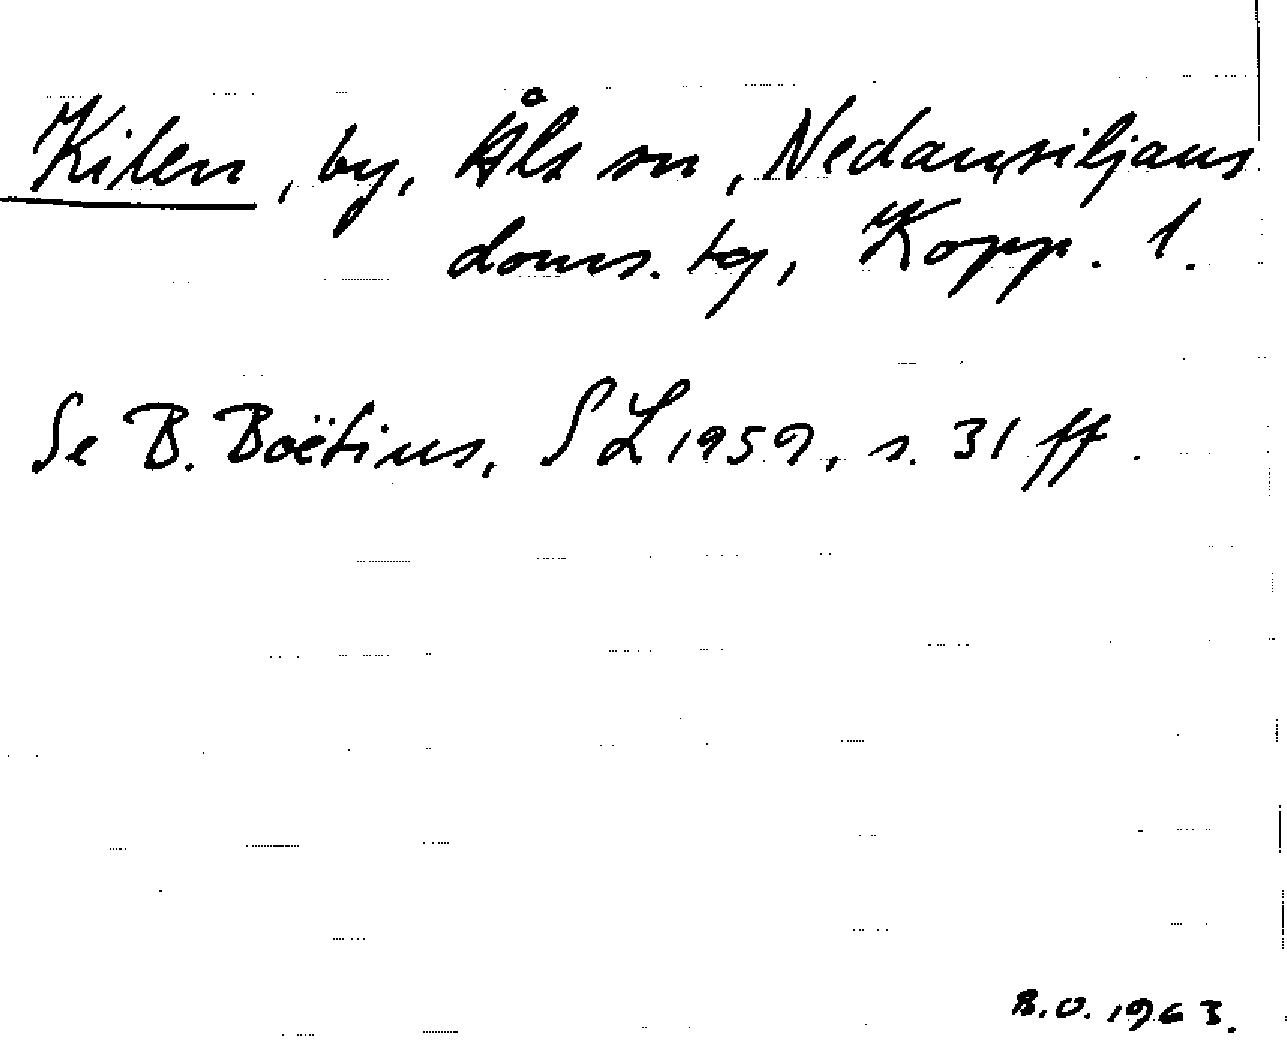 Kilen, by, Åls sn, Nedansiljans
doms. tg, Kopp. l.
Se B. Boëtius, SL 1959, s. 31 ff.
B.O. 1963.